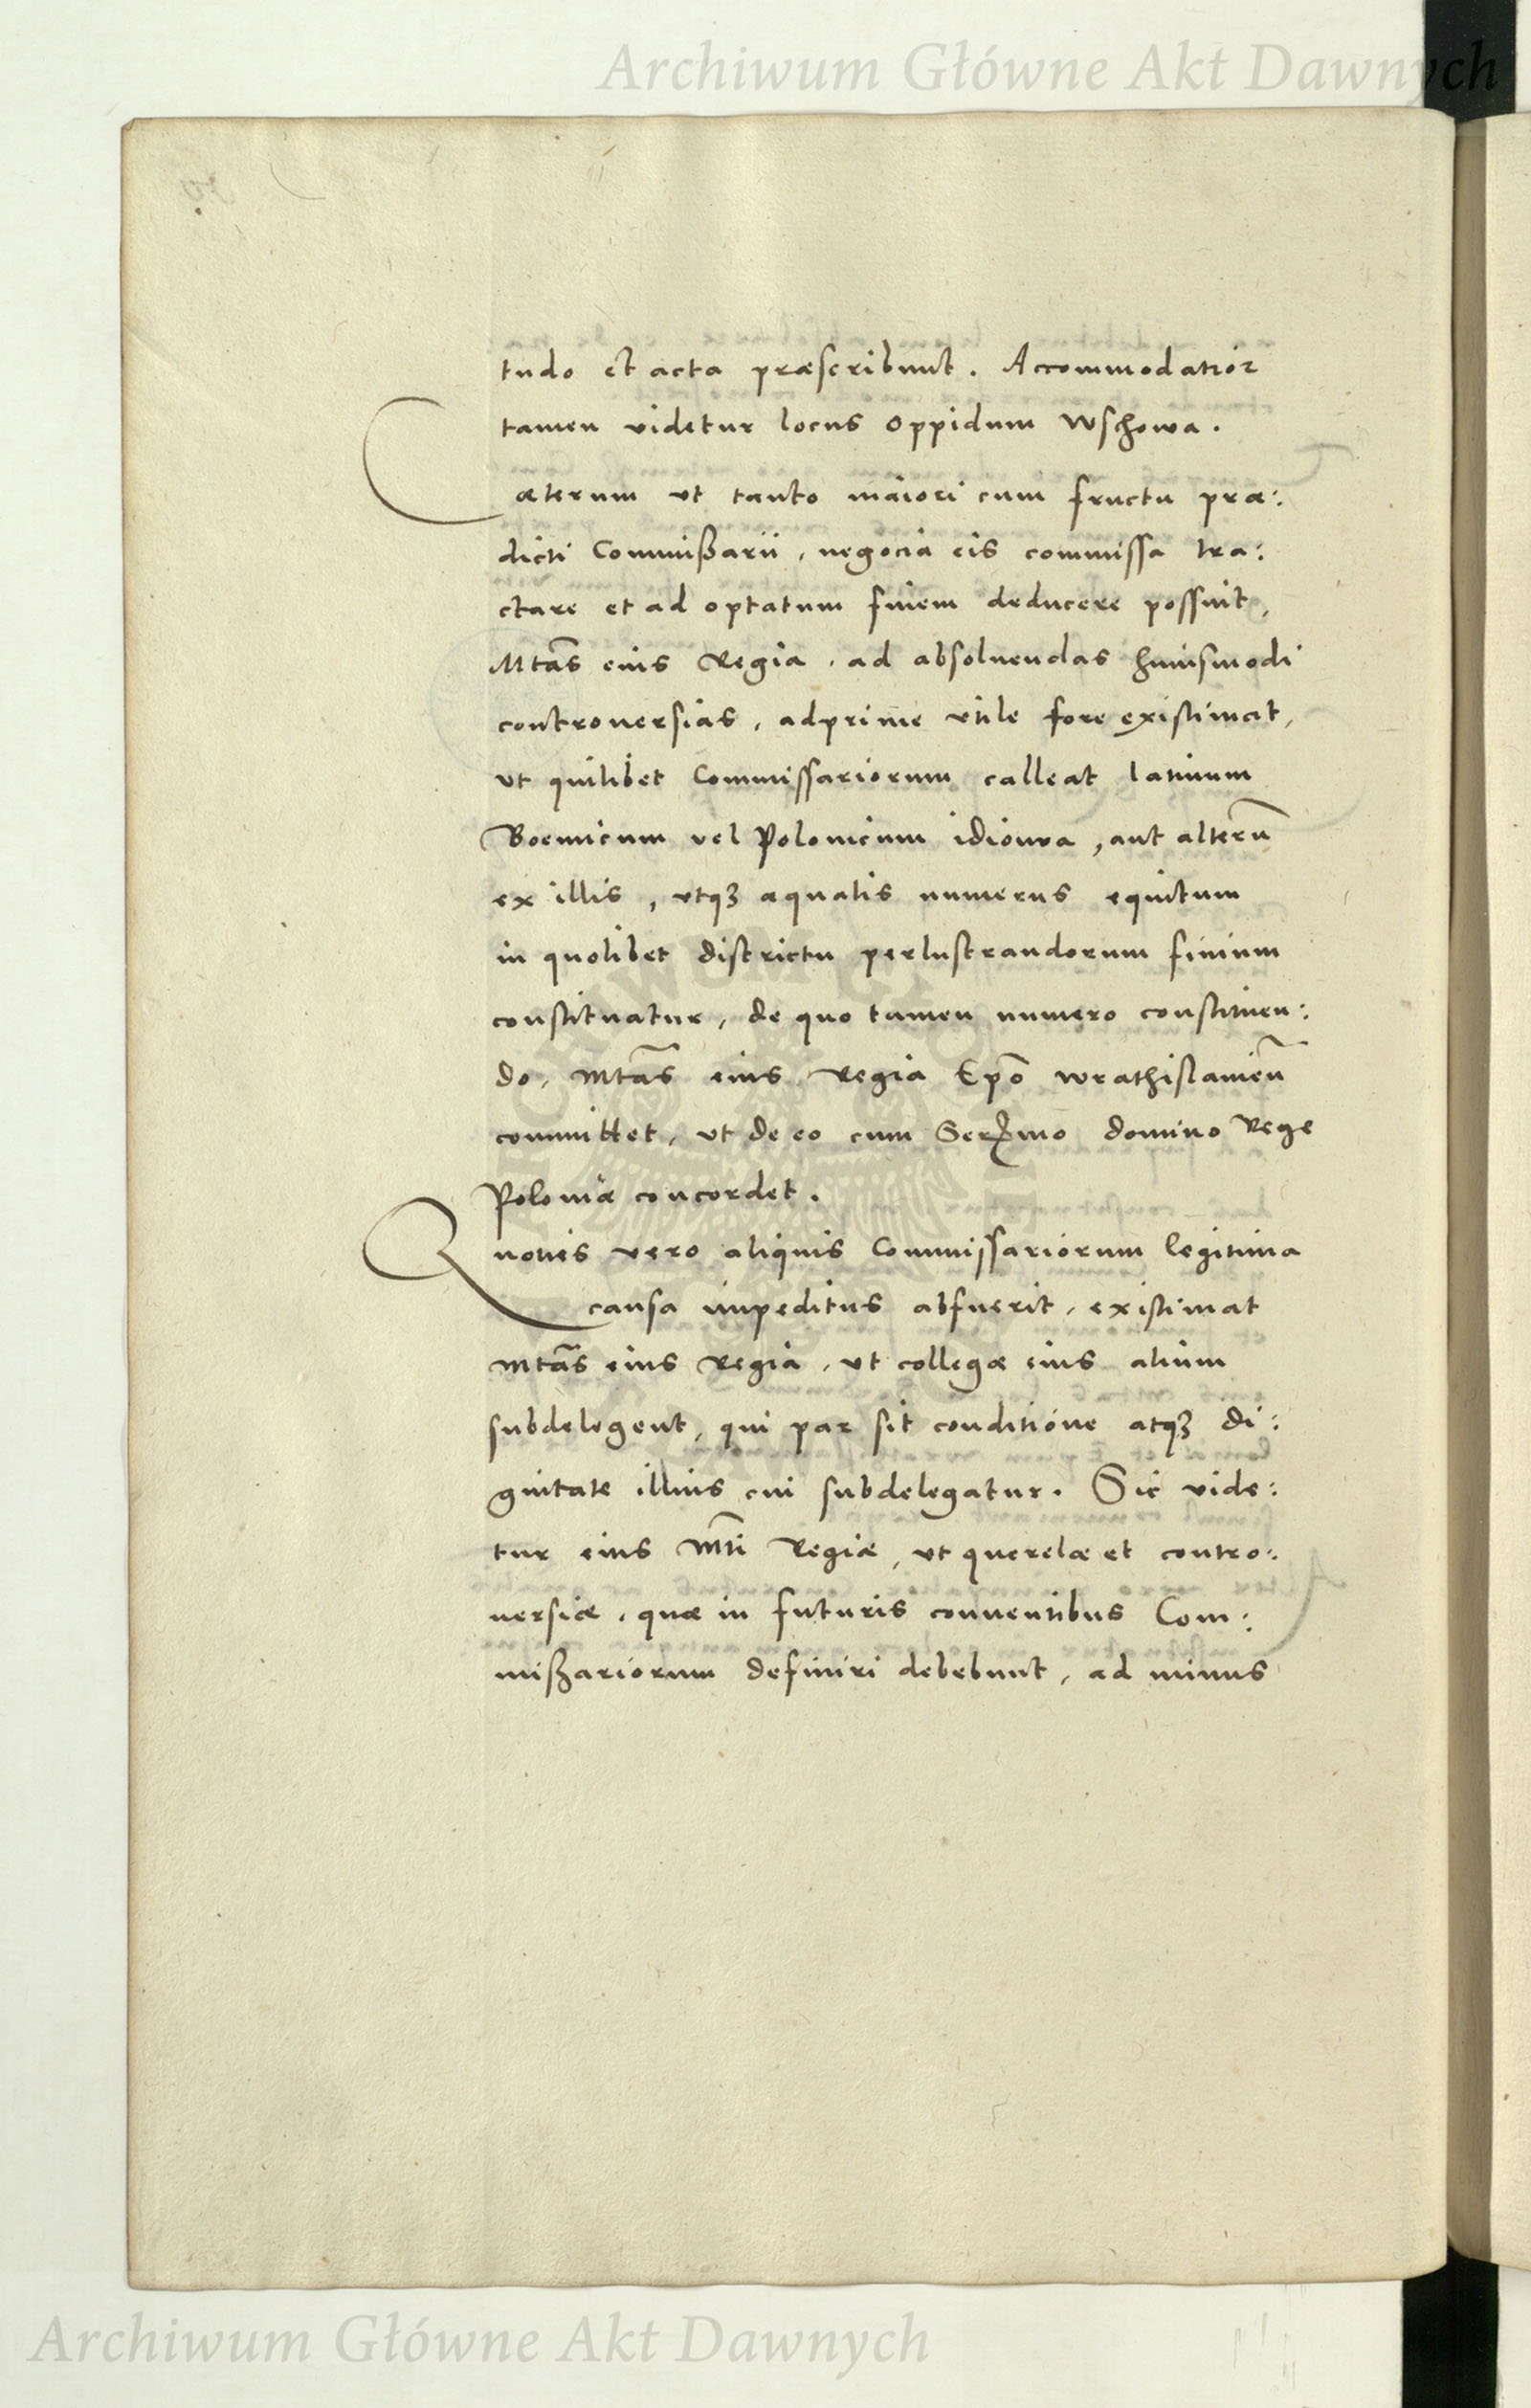 Archiwum Główne Akt Dawnych
tudo et acta præscribunt. Accommodatior
tamen videtur locus oppidum Wschowa.
Cæterum vt tanto maiori cum fructu præ:
dicti Commißarii, negocia eis commissa tra:
ctare et ad optatum finem deducere possint,
Mtas eius Regia, ad absoluendas huiusmodi
controuersias, adprime vtile fore existimat,
vt quilibet Commissariorum calleat latinum
Boemicum vel Polonicum idioma, aut alterū
ex illis, vtqꝫ æqualis numerus equitum
in quolibet districtu perlustrandorum finium
constituatur, de quo tamen numero constituen:
do, Mtas eius Regia Epō wrathislamień
committet, vt de eo cum Serᵐᵒ domino Rege
Poloniæ concordet.
Quoties vero aliquis Commissariorum legitima
causa impeditus abfuerit, existimat
Mtas eius Regia, vt collegæ eius alium
subdelegent, qui par sit conditione atqꝫ di:
gnitate illius cui subdelegatur. Sic vide:
tur eius Mti Regiæ, vt querelæ et contro:
uersiæ, quæ in futuris conuentibus Com:
mißariorum definiri debebunt, ad minus
Archiwum Główne Akt Dawnych